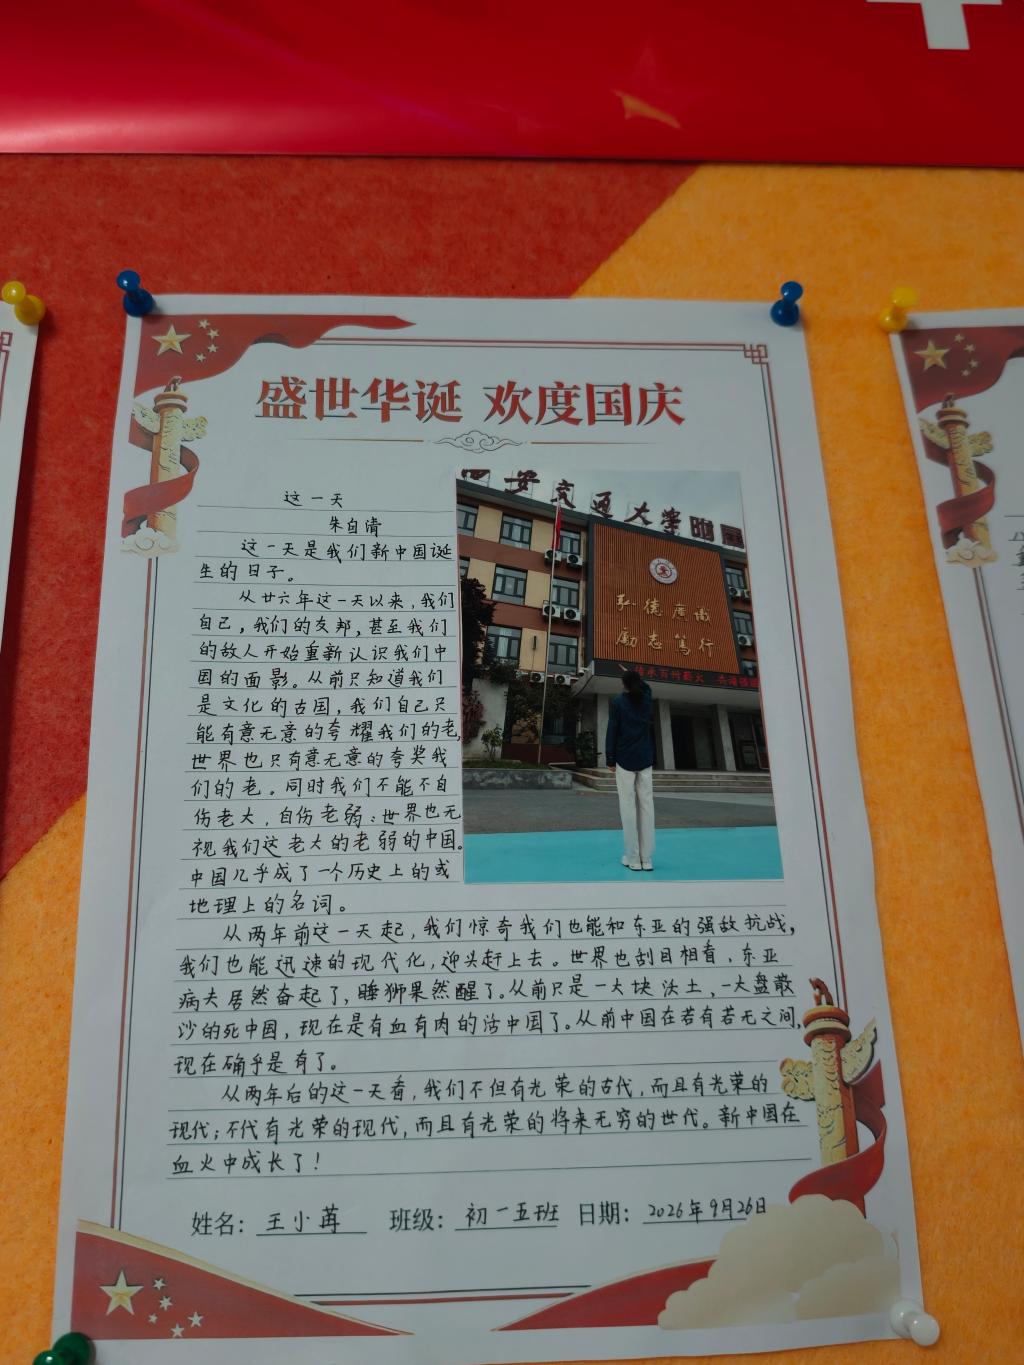 盛世华诞 欢度国庆
西安交通大学附属
弘德广识
励志笃行
这一天
朱自清
这一天是我们新中国诞
生的日子。
从廿六年这一天以来，我们
自己，我们的友邦，甚至我们
的敌人开始重新认识我们中
国的面影。从前只知道我们
是文化的古国，我们自己只
能有意无意的夸耀我们的老，
世界也只有意无意的夸奖我
们的老。同时我们不能不自
伤老大，自伤老弱；世界也无
视我们这老大的老弱的中国。
中国几乎成了一个历史上的或
地理上的名词。
从两年前这一天起，我们惊奇我们也能和东亚的强敌抗战，
我们也能迅速的现代化，迎头赶上去。世界也刮目相看，东亚
病夫居然奋起了，睡狮果然醒了。从前只是一大块沃土，一大盘散
沙的死中国，现在是有血有肉的活中国了。从前中国在若有若无之间，
现在确乎是有了。
从两年后的这一天看，我们不但有光荣的古代，而且有光荣的
现代；不代有光荣的现代，而且有光荣的将来无穷的世代。新中国在
血火中成长了！
姓名：王小苒 班级：初一五班 日期：2026年9月26日